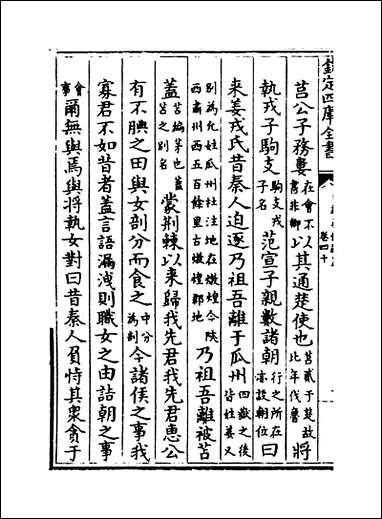 欽定四庫全書
卷四十
莒公子務婁在會不書非卿以其通楚使也莒貳于楚故比年伐魯將
執戎子駒支駒支戎子名范宣子親數諸朝行之所在亦設朝位曰
来姜戎氏昔秦人迫逐乃祖吾離于瓜州四嶽之後皆姓姜又
别為允姓瓜州杜注地在燉煌今陝西肅州西五百餘里古燉煌郡地乃祖吾離被苫
蓋苫編茅也蓋苫之别名蒙荆棘以来歸我先君我先君惠公
有不腆之田與女剖分而食之中分為剖今諸侯之事我
寡君不如昔者蓋言語漏洩則職女之由詰朝之事
會事爾無與焉與將執女對曰昔秦人負恃其衆貪于